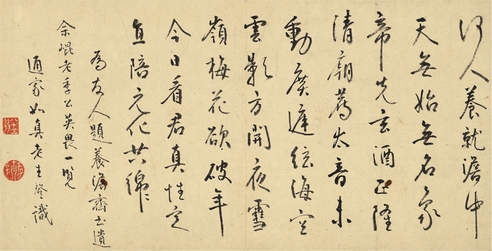 何人養就澹中
天無始無名象
帝先玄酒正隆
清廟薦太音未
動廣庭絃海空
雲影方開夜雪
嶺梅花欲破年
今日看君真性定
直陪元化共綿〻
為友人題養澹齋書遺
余崐老季公英畏一覽
通家如真老生登識